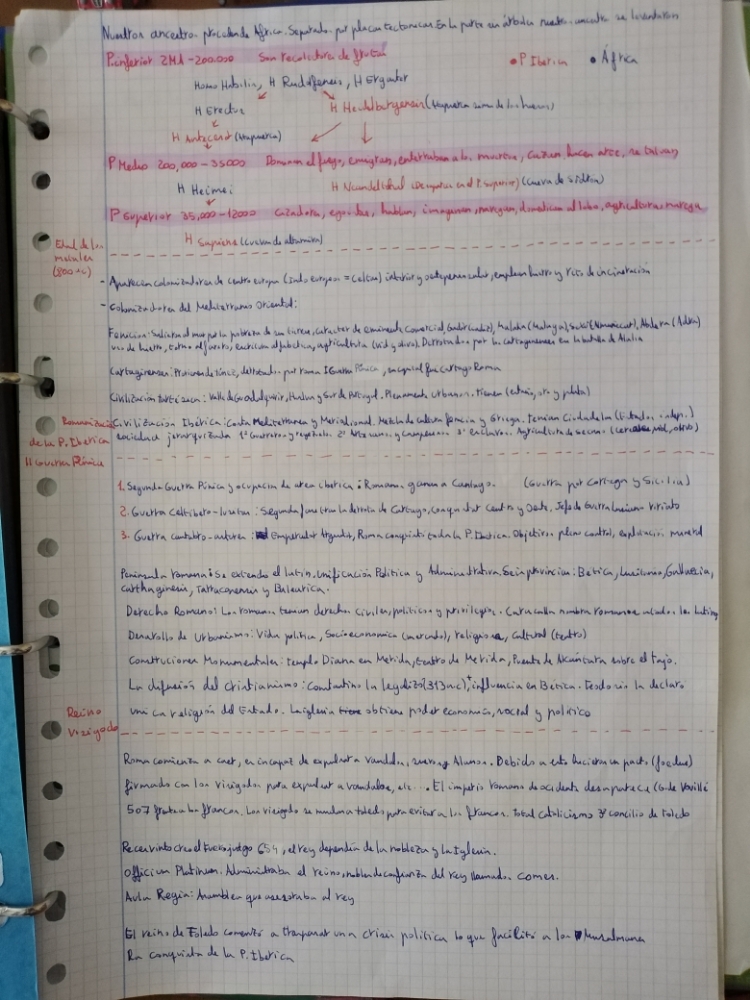 Nuestros ancestros proceden de Africa. Separados por placas tectonicas. En la parte
P.inferior 2MA-200.000 Son recolectores de frutas
• P Iberica • África
Homo Habilis, H Rudolfensis, H Ergaster
H Erectus
H Heidelbergensis (Atapuerca sima de los huesos)
H Antecesor (Atapuerca)
P Medio 200,000-35000 Dominan el fuego, emigran, enterraban a los muertos, cazan, hacen arte
H Neandelthal (Desaparece en el P. superior) (cueva de Sidrón)
P Superior 35,000-12000 cazadores, hablan, imaginan, navegan, domestican al lobo
H Sapiens (Cuevas de altamira)
Edad de los
metales
(800 a.c)
- Aparecen colonizadores de centro europa (Indo europeos = Celtas) interior y oeste peninsular, emplean hierro y ritos de incineración
- Colonizadores del Mediterraneo Oriental:
Fenicios: Salieron al mar por la pobreza de sus tierras, caracter eminente comercial, Gadir(cadiz), Malaka (Malaga) Sexi(Almuñecar), Abdera (Adra)
uso de hierro, torno alfarero, escritura alfabetica, agricultura (vid y olivo). Derrotados por los cartagineses en la batalla de Alalia
Cartagineses: derrotados por roma I Guerra Púnica, su capital fue cartago Roma
Civilización tartésica: Valle de Guadalquivir, Huelva y Sur de Portugal. Plenamente urbanos. Tienen (estaño, oro y plata)
Romanización
de la P. Iberica
II Guerra Púnica
Civilización Ibérica: Costa Mediterranea y Meridional. Mezcla de cultura fenicia y Griega. Tenian Ciudadelas (Estados indep.)
sociedad jerarquizada 1º Guerreros y 2º Artesanos y Campesinos 3º Esclavos. Agricultura de secano
1. Segunda Guerra Púnica y ocupacion de area iberica: Romanos ganan a Cartago. (Guerra por Cartagena y Sicilia)
2. Guerra Celtibero-lusitana: Segunda fase tras la derrota de Cartago, conquistar Centro y Oeste. Jefe de Guerra lusitano Viriato
3. Guerra cantabro-astures: Emperador Augusto, Roma conquista toda la P. Iberica. Objetivos pleno control, explotacion mineral
Peninsula romana: Se extiende el latin. Unificación Politica y Administrativa. Seis provincias: Betica, Lusitania, Gallaecia,
carthaginensis, Tarraconensis y Balearica.
Derecho Romano: Los romanos tenian derechos civiles, politicos y privilegios. Caracalla nombra romanos a todos los habitan
Desarollo de Urbanismo: Vida politica, Socioeconomica (mercado), religiosa, Cultural (teatro)
Construciones Monumentales: templo Diana en Merida, teatro de Merida, Puente de Alcántara sobre el Tajo.
La difusión del cristianismo: Constantino la legalizó(313 d.c), + influencia en Bética. Teodosio la declaro
unica religión del Estado. La iglesia obtiene poder economico, social y politico
Reino
Visigodo
Roma comienza a caer, es incapaz de expulsar a vandalos, suevos y Alanos. Debido a esto hicieron un pacto (foedus)
firmado con los visigodos para expulsar a vandalos, etc... El imperio romano de occidente desaparece (Batalla de Vouillé
507 frente a los francos. Los visigodos se mudan a toledo para evitar a los francos. Total catolicismo 3º concilio de toledo
Recesvinto creo el Fuero juzgo 654, el rey dependia de la nobleza y la Iglesia.
Officium Platinum. Administraba el reino, nobles de confianza del rey llamados comes.
Aula Regia: Asamblea que asesoraba al rey
El reino de Toledo comenzó a traspasar una crisis politica lo que facilitó a los Musulmanes
la conquista de la P. Iberica